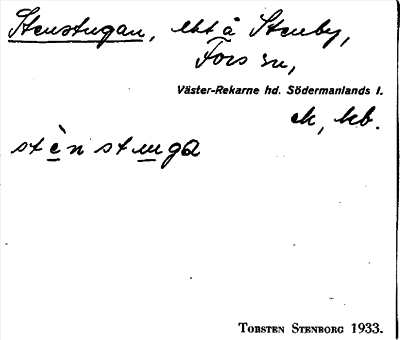 Stenstugan, lht å Stenby,
Fors sn,
Väster-Rekarne hd. Södermanlands l.
ek, kb.
stènstuga
TORSTEN STENBORG 1933.